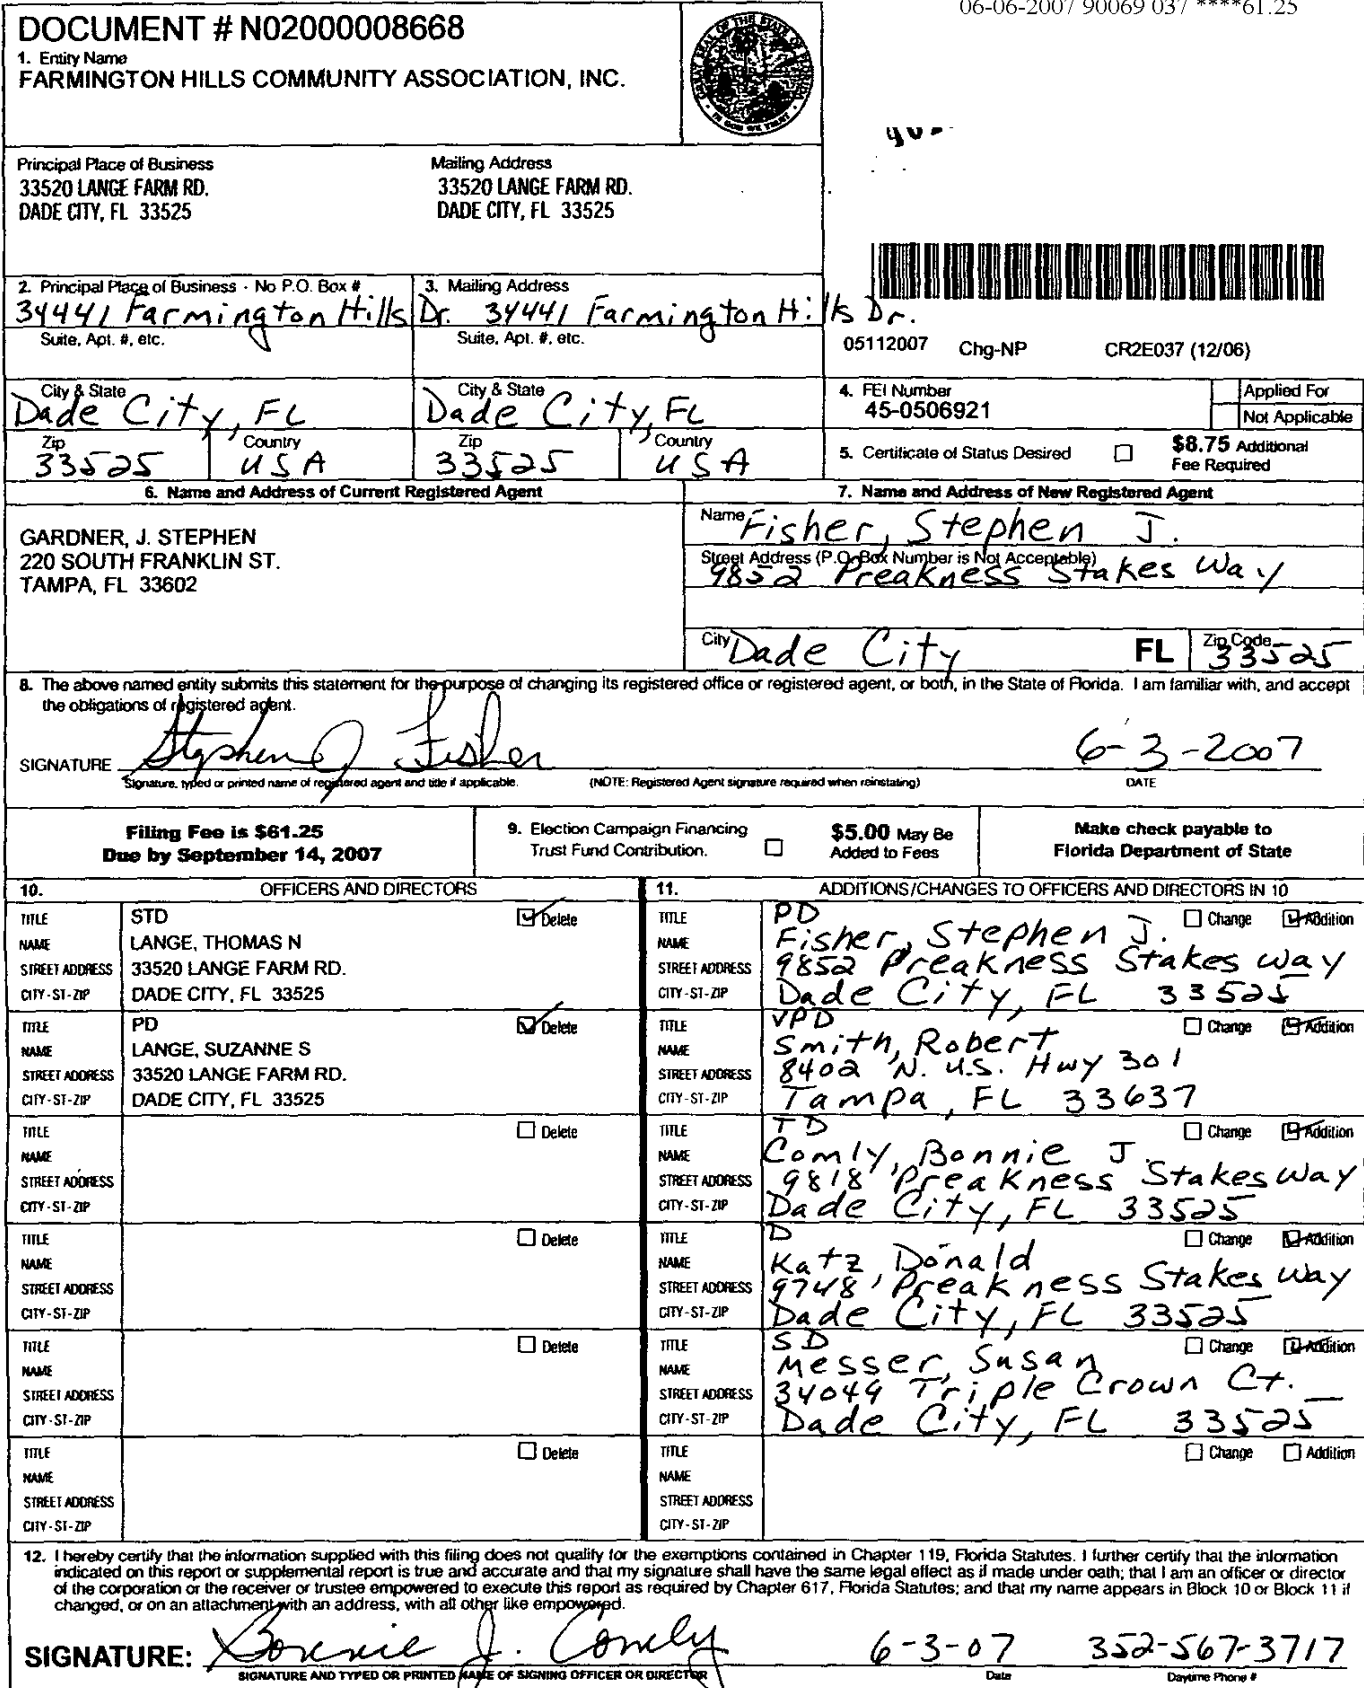 06-06-2007 90069 037 ****61.25
DOCUMENT # N02000008668
1. Entity Name
FARMINGTON HILLS COMMUNITY ASSOCIATION, INC.
Principal Place of Business
33520 LANGE FARM RD.
DADE CITY, FL 33525
Mailing Address
33520 LANGE FARM RD.
DADE CITY, FL 33525
2. Principal Place of Business - No P.O. Box #
34441 Farmington Hills Dr.
Suite, Apt. #, etc.
City & State
Dade City, FL
Zip
33525
Country
USA
3. Mailing Address
34441 Farmington Hills Dr.
Suite, Apt. #, etc.
City & State
Dade City, FL
Zip
33525
Country
USA
05112007 Chg-NP CR2E037 (12/06)
4. FEI Number
45-0506921
Applied For
Not Applicable
5. Certificate of Status Desired
$8.75 Additional
Fee Required
6. Name and Address of Current Registered Agent
GARDNER, J. STEPHEN
220 SOUTH FRANKLIN ST.
TAMPA, FL 33602
7. Name and Address of New Registered Agent
Name Fisher, Stephen J.
Street Address (P.O. Box Number is Not Acceptable)
9852 Preakness Stakes Way
City Dade City FL Zip Code 33525
8. The above named entity submits this statement for the purpose of changing its registered office or registered agent, or both, in the State of Florida. I am familiar with, and accept
the obligations of registered agent.
SIGNATURE Stephen J Fisher 6-3-2007
Signature, typed or printed name of registered agent and title if applicable. (NOTE: Registered Agent signature required when reinstating) DATE
Filing Fee is $61.25
Due by September 14, 2007
9. Election Campaign Financing
Trust Fund Contribution.
$5.00 May Be
Added to Fees
Make check payable to
Florida Department of State
10. OFFICERS AND DIRECTORS
TITLE STD Delete
NAME LANGE, THOMAS N
STREET ADDRESS 33520 LANGE FARM RD.
CITY-ST-ZIP DADE CITY, FL 33525
TITLE PD Delete
NAME LANGE, SUZANNE S
STREET ADDRESS 33520 LANGE FARM RD.
CITY-ST-ZIP DADE CITY, FL 33525
TITLE Delete
NAME
STREET ADDRESS
CITY-ST-ZIP
TITLE Delete
NAME
STREET ADDRESS
CITY-ST-ZIP
TITLE Delete
NAME
STREET ADDRESS
CITY-ST-ZIP
TITLE Delete
NAME
STREET ADDRESS
CITY-ST-ZIP
11. ADDITIONS/CHANGES TO OFFICERS AND DIRECTORS IN 10
TITLE PD Change Addition
NAME Fisher, Stephen J.
STREET ADDRESS 9852 Preakness Stakes Way
CITY-ST-ZIP Dade City, FL 33525
TITLE VPD Change Addition
NAME Smith, Robert
STREET ADDRESS 8402 N. U.S. Hwy 301
CITY-ST-ZIP Tampa, FL 33637
TITLE TD Change Addition
NAME Comly, Bonnie J.
STREET ADDRESS 9818 Preakness Stakes Way
CITY-ST-ZIP Dade City, FL 33525
TITLE D Change Addition
NAME Katz, Donald
STREET ADDRESS 9748 Preakness Stakes Way
CITY-ST-ZIP Dade City, FL 33525
TITLE SD Change Addition
NAME Messer, Susan
STREET ADDRESS 34049 Triple Crown Ct.
CITY-ST-ZIP Dade City, FL 33525
TITLE Change Addition
NAME
STREET ADDRESS
CITY-ST-ZIP
12. I hereby certify that the information supplied with this filing does not qualify for the exemptions contained in Chapter 119, Florida Statutes. I further certify that the information
indicated on this report or supplemental report is true and accurate and that my signature shall have the same legal effect as if made under oath; that I am an officer or director
of the corporation or the receiver or trustee empowered to execute this report as required by Chapter 617, Florida Statutes; and that my name appears in Block 10 or Block 11 if
changed, or on an attachment with an address, with all other like empowered.
SIGNATURE: Bonnie J. Comly 6-3-07 352-567-3717
SIGNATURE AND TYPED OR PRINTED NAME OF SIGNING OFFICER OR DIRECTOR Date Daytime Phone #